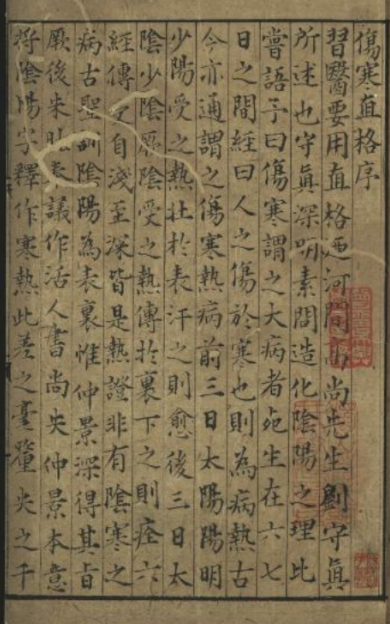 傷寒直格序
習醫要用直格迺河間高尚先生劉守真
所述也守真深明素問造化陰陽之理比
嘗語予曰傷寒謂之大病者死生在六七
日之間經曰人之傷於寒也則為病熱古
今亦通謂之傷寒熱病前三日太陽陽明
少陽受之熱壯於表汗之則愈後三日太
陰少陰厥陰受之熱傳於裏下之則痊六
經傳受自淺至深皆是熱證非有陰寒之
病古聖訓陰陽為表裏惟仲景深得其旨
厥後朱肱奉議作活人書尚失仲景本意
將陰陽字釋作寒熱此差之毫釐失之千